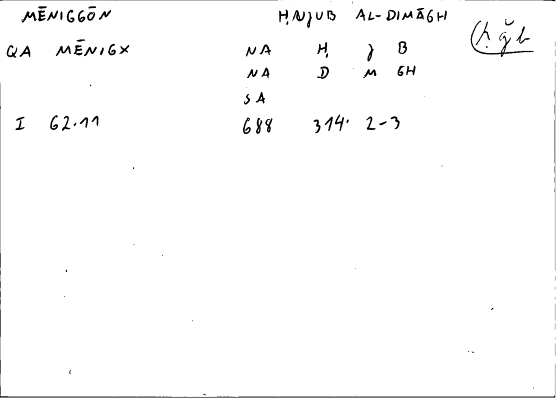 MĒNIGGŌN H,NJUB AL-DIMĀGH
ḥ ǧb
QA MĒNIGX NA H, J B
NA D M GH
SA
I 62.11 688 314. 2-3